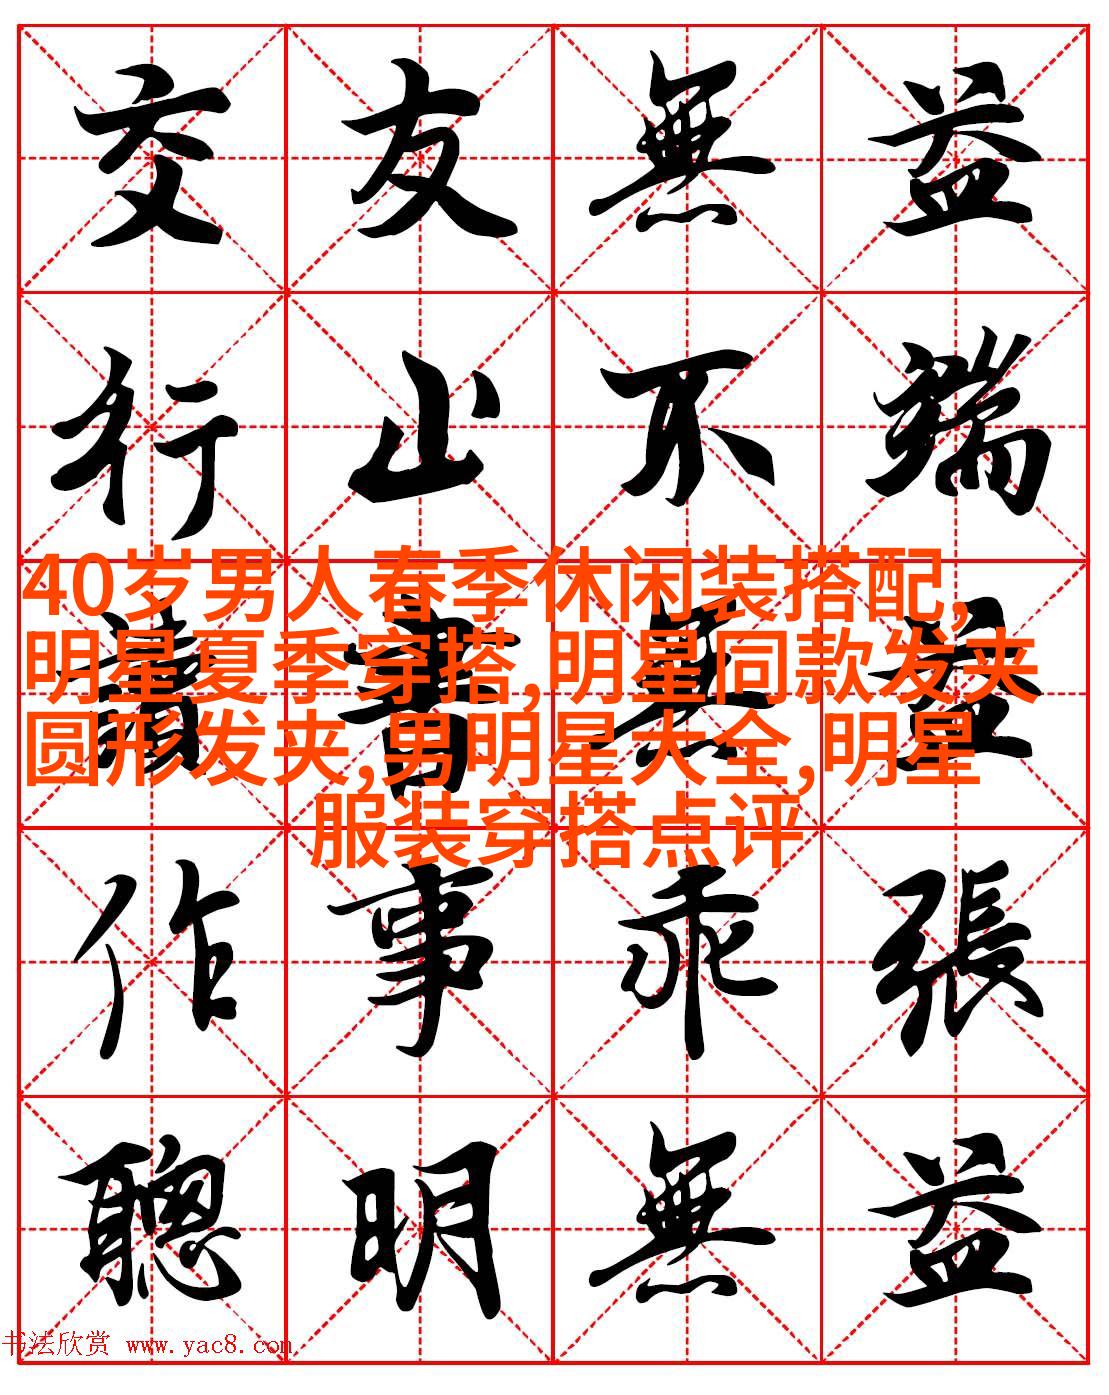 交友無益
行止不端
40岁男人春季休闲装搭配,
明星夏季穿搭,明星同款发夹
圆形发夹,男明星大全,明星
服装穿搭点评
讀書無益
作事乖張
聰明無益
书法欣赏 www.yac8.com